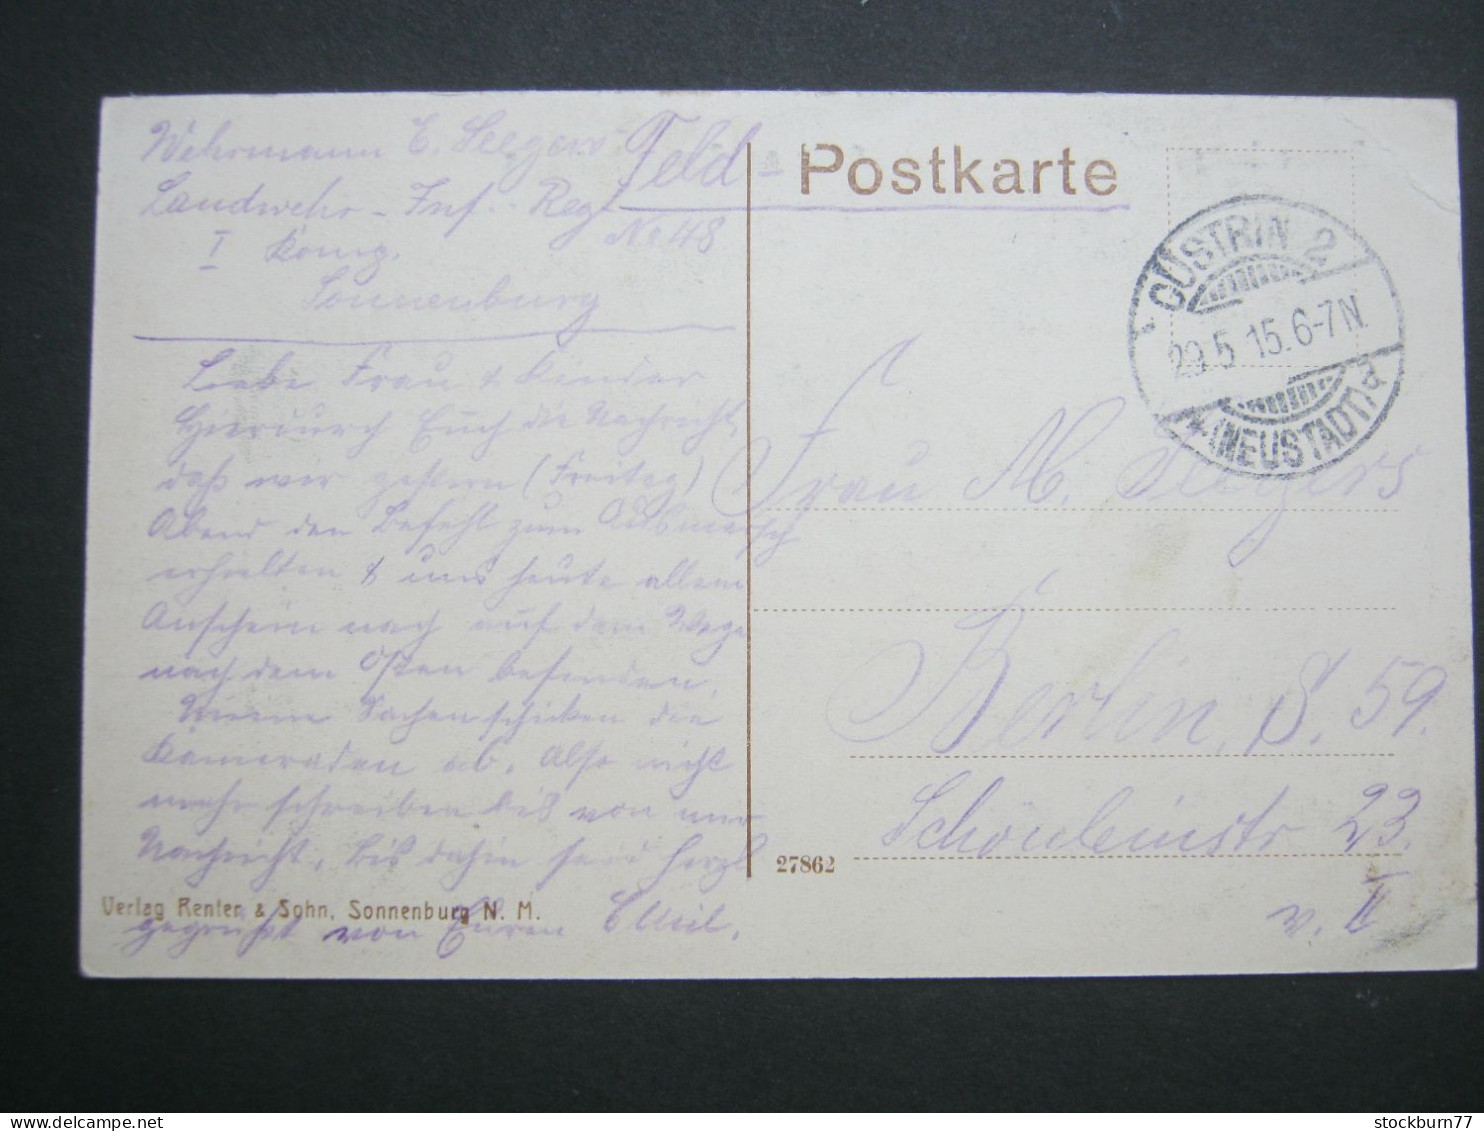 Wehrmann E. Seegers
Landwehr-Inf.-Reg.
No 48
I Komp.
Sonnenburg
Feld-Postkarte
CÜSTRIN 2
29.5.15.6-7N.
(NEUSTADT) d
Liebe Frau & Kinder
Hierdurch Euch die Nachricht,
daß wir gestern (Freitag)
Abend den Befehl zum Ausmarsch
erhielten & uns heute allem
Anschein nach auf dem Wege
nach dem Osten befinden.
Meine Sachen schicken die
Kameraden ab. Also nicht
mehr schreiben bis von mir
Nachricht. Bis dahin seid herzl
gegrüßt von Euren Emil.
Verlag Renter & Sohn, Sonnenburg N. M.
27862
Frau M. Seegers
Berlin, S. 59.
Schönleinstr 23.
v. II
stockburn77